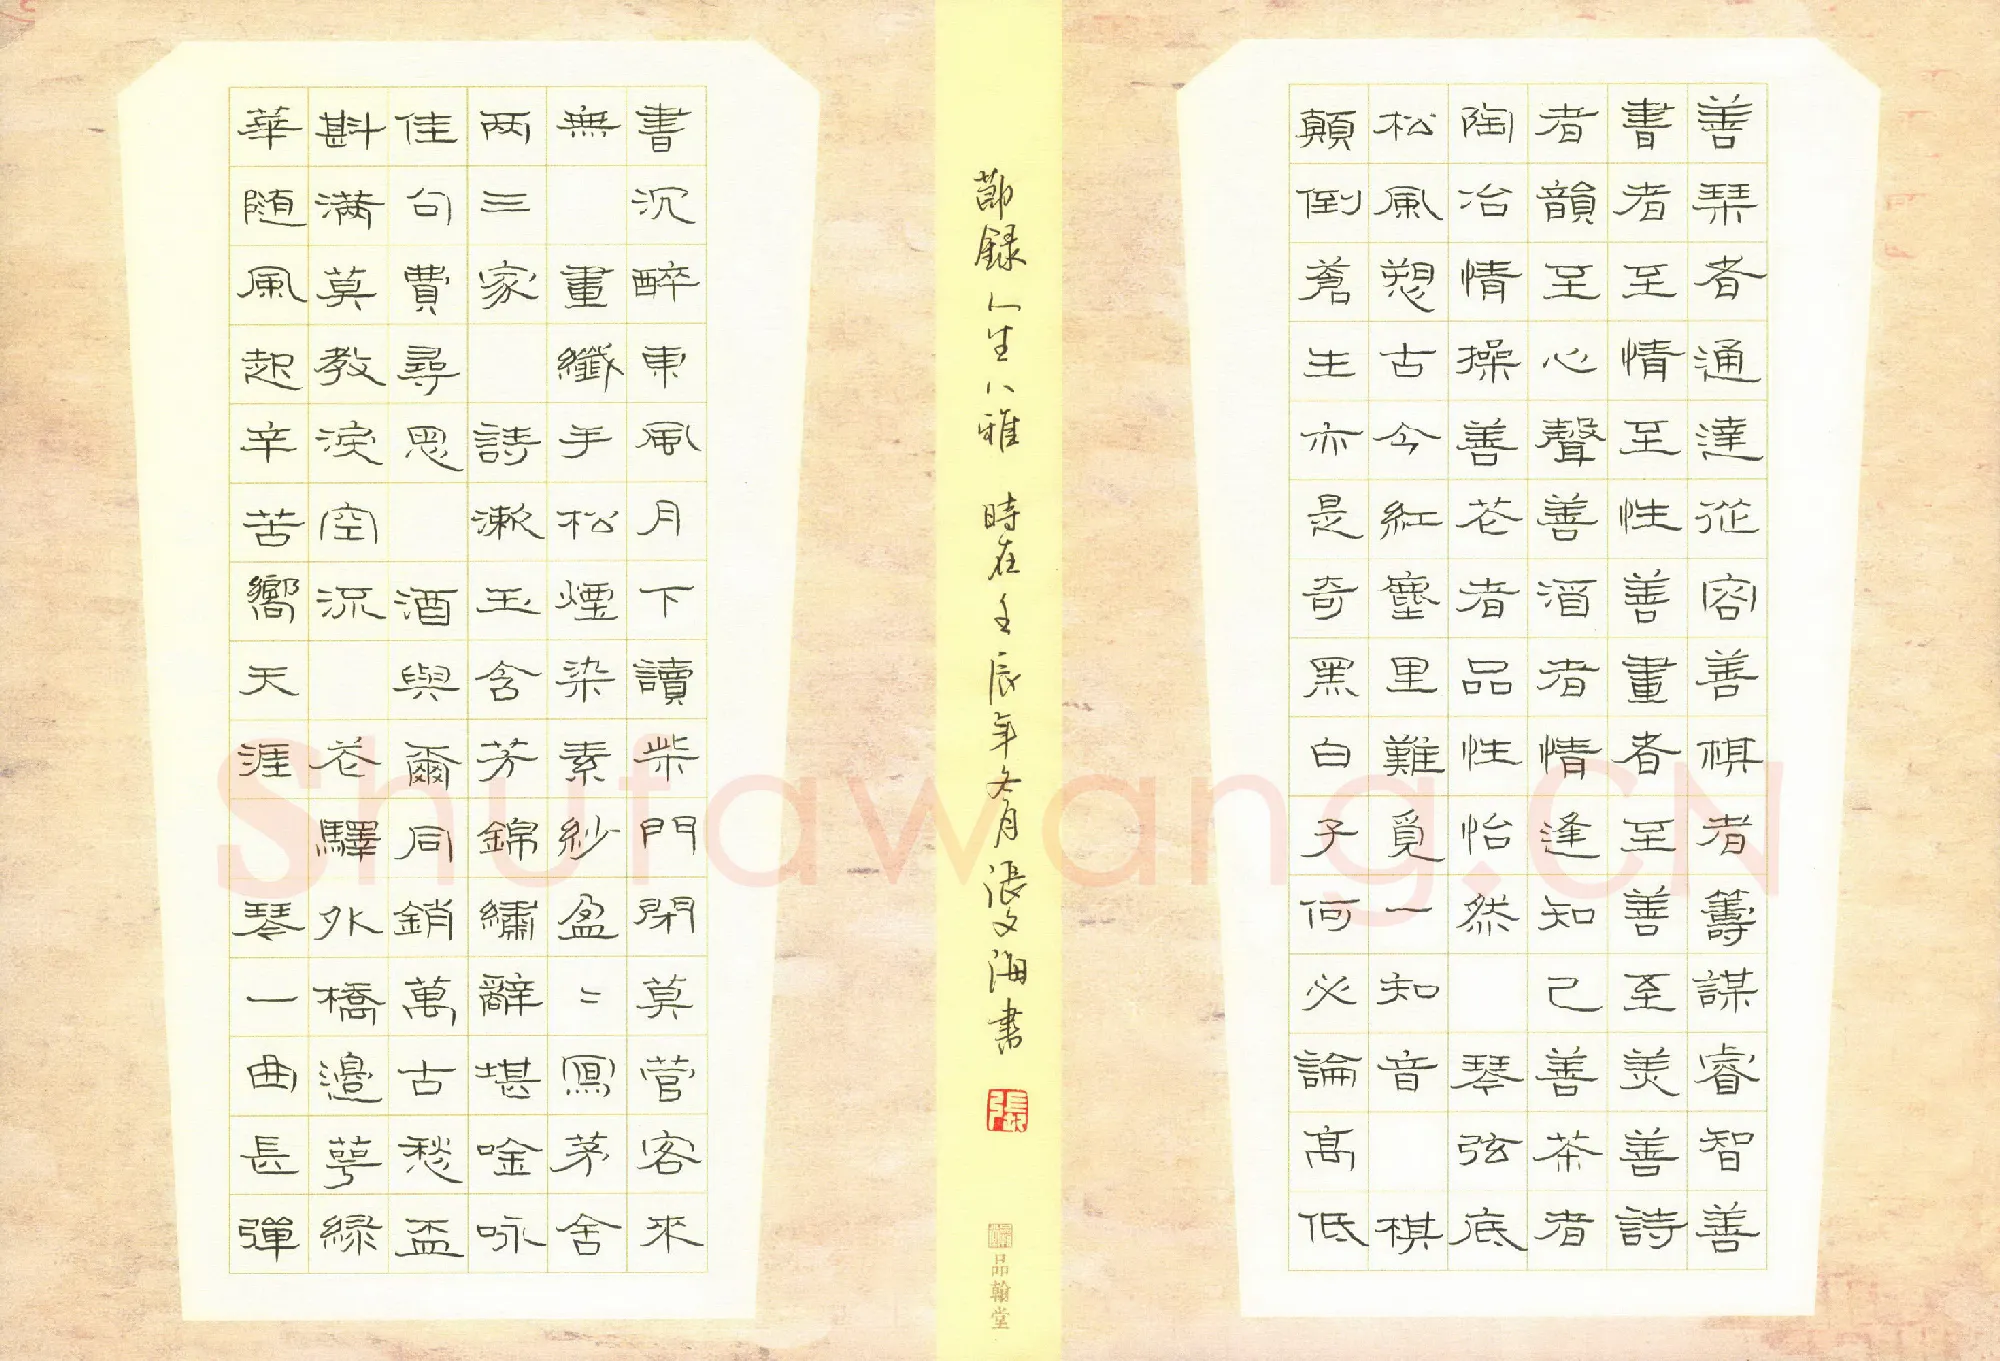 善琹者通達從容善棋者籌謀睿智善
書者至情至性善畫者至善至美善詩
者韻至心聲善酒者情逢知己善茶者
陶冶情操善花者品性怡然 琴弦底
松風愬古今紅塵里難覓一知音 棋
顛倒蒼生亦是奇黑白子何必論高低
節錄人生八雅 時在壬辰年冬月張文海書
張
品翰堂
書沉醉東風月下讀柴門閉莫管客來
無 畫纖手松煙染素紗盈〻寫茅舍
两三家 詩漱玉含芳錦繡辭堪唫咏
佳句費尋思 酒與爾同銷萬古愁盃
斟满莫教淚空流 花驛外橋邊萼緑
華随風起辛苦嚮天涯 琴一曲長彈
Shufawang.CN